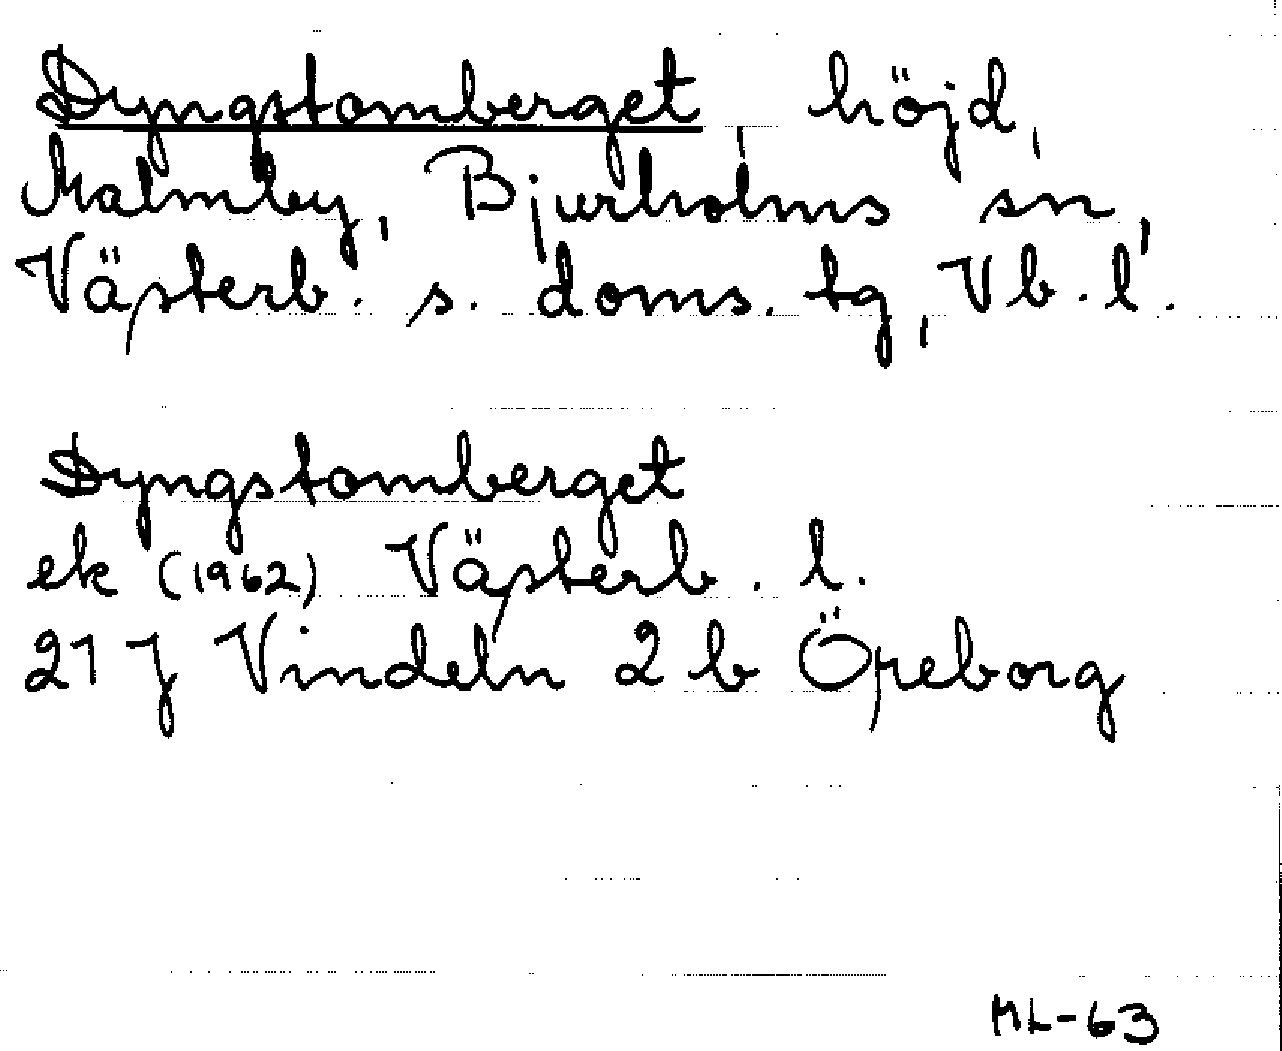 Dyngstomberget, höjd,
Malmby, Bjurholms sn,
Västerb. s. doms. tg, Vb. l.
Dyngstomberget
ek (1962) Västerb. l.
21 J Vindeln 2 b Öreborg
ML-63